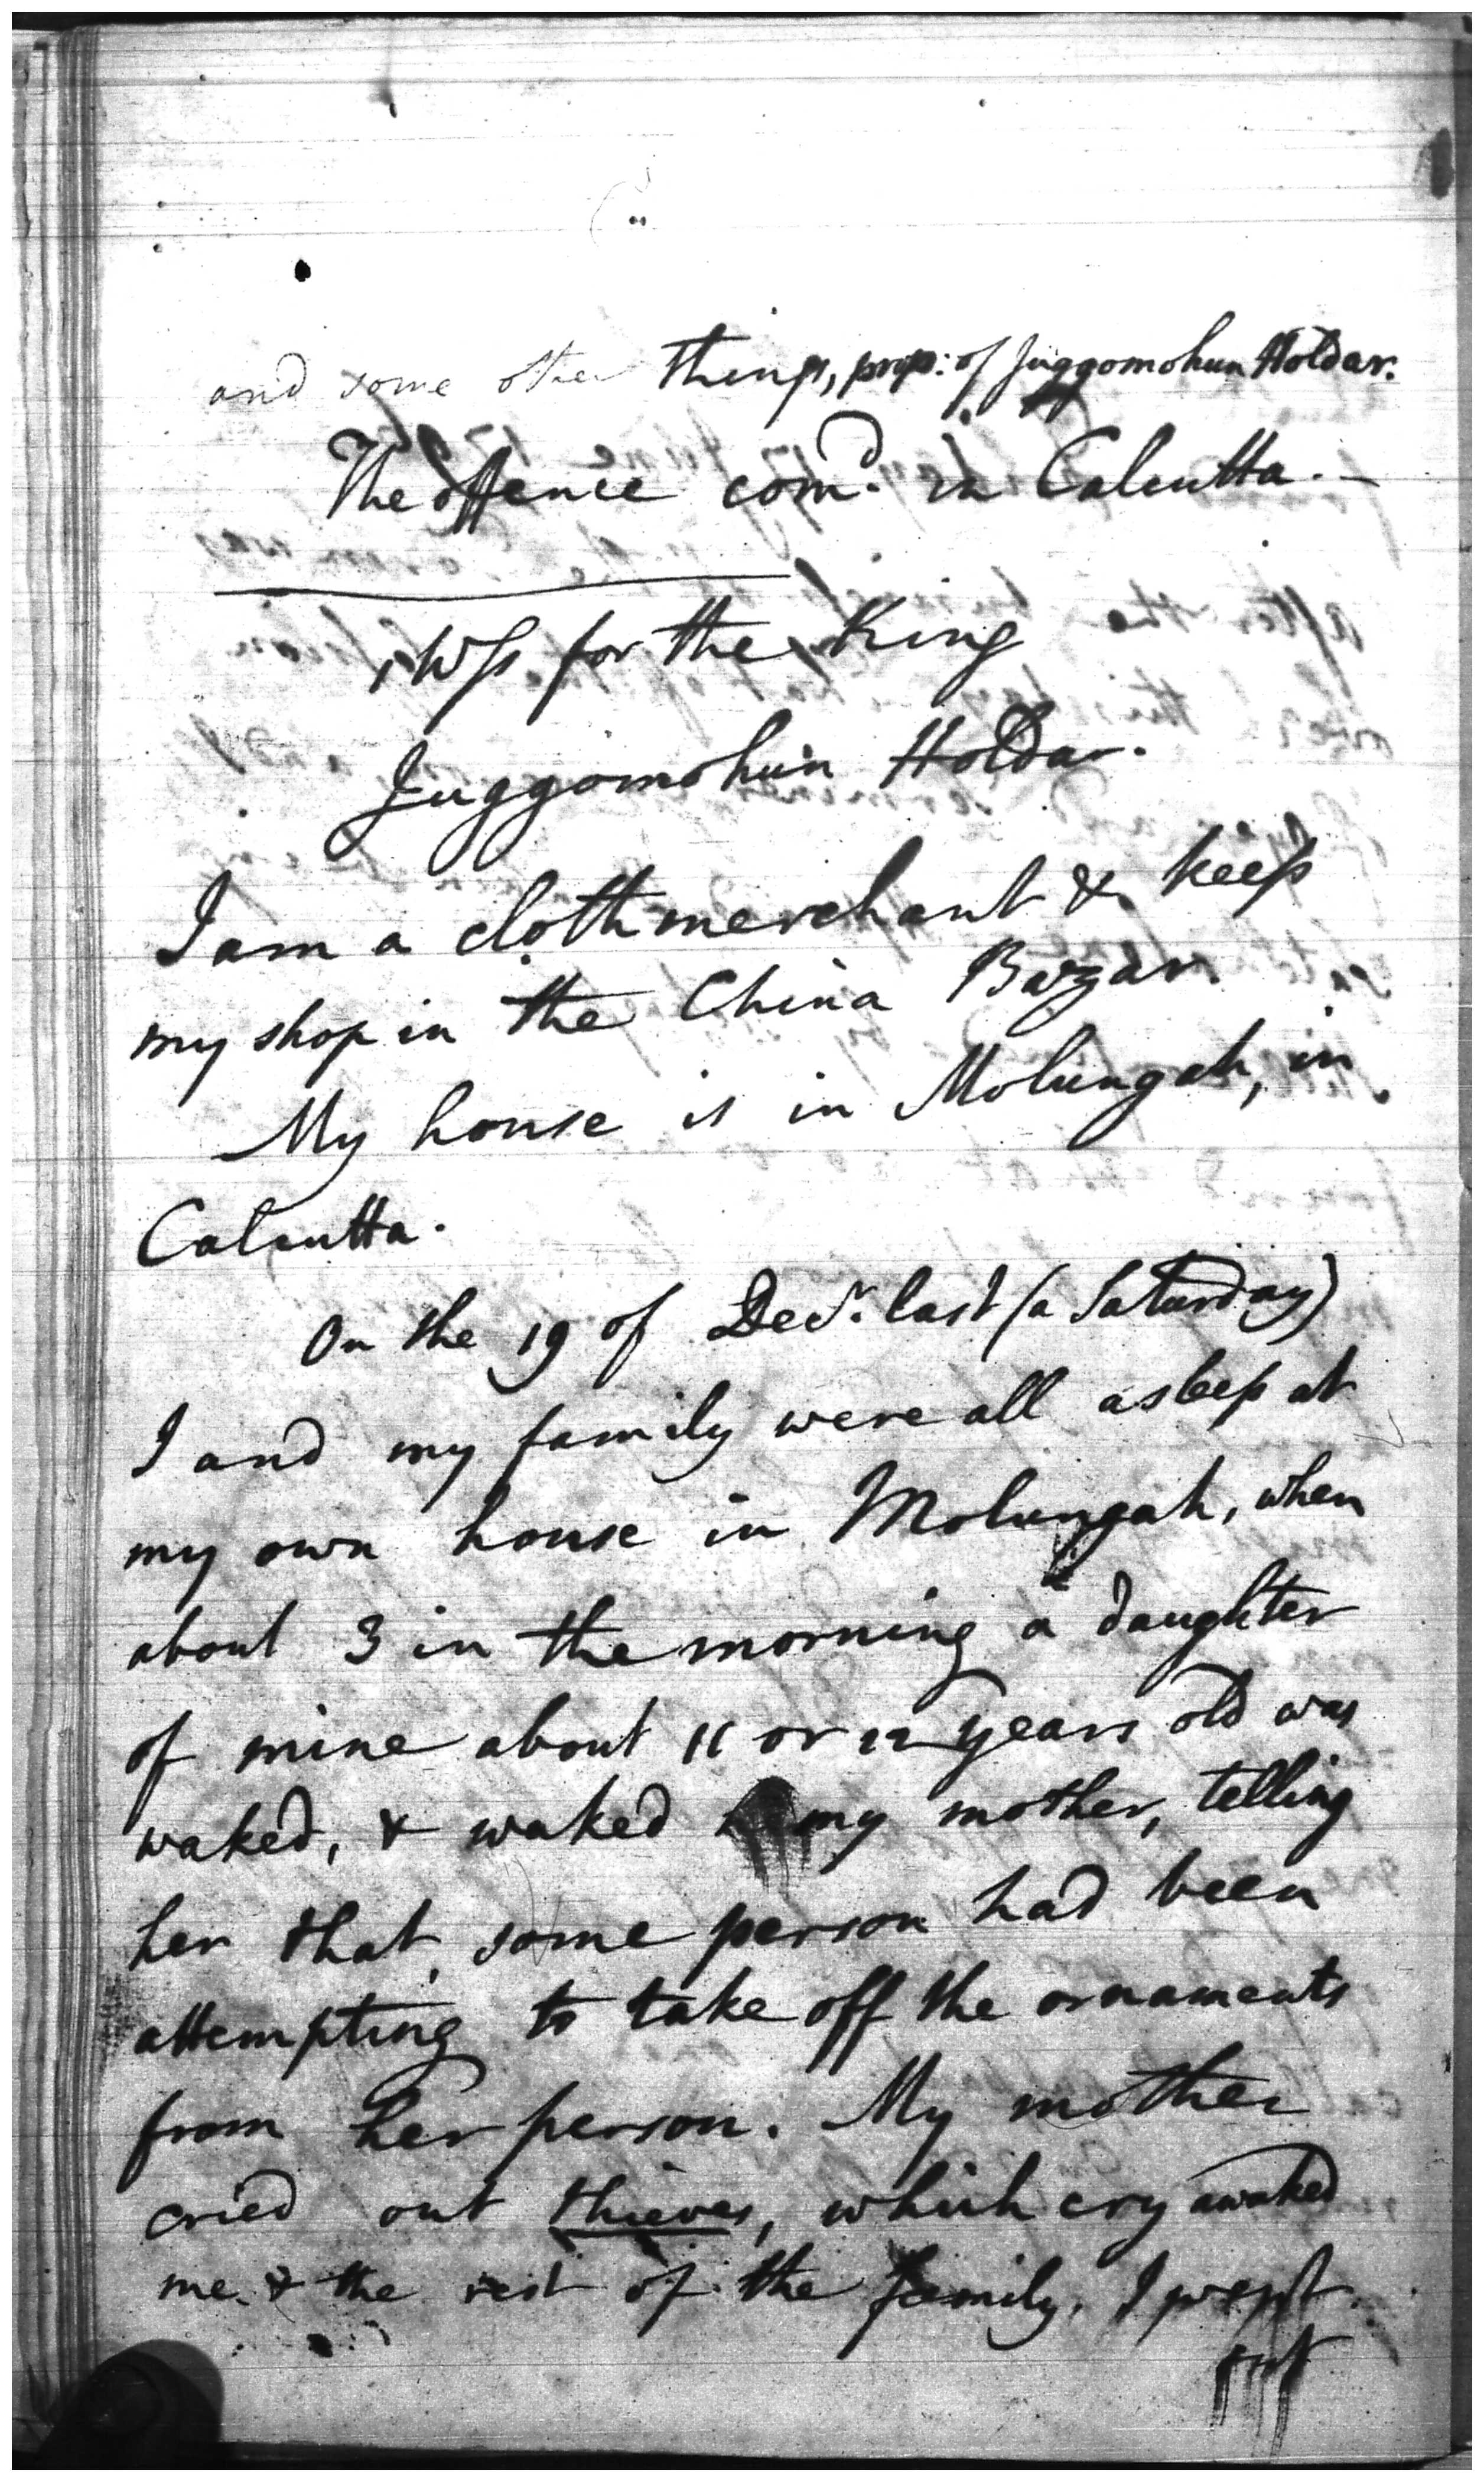 and some other things, prop: of Juggomohun Holdar.
The offence com.d in Calcutta. —
1 Wss for the King
Juggomohun Holdar.
I am a cloth merchant & keep
my shop in the China Bazar.
My house is in Molungah, in
Calcutta.
On the 19 of Decr. last (a Saturday)
I and my family were all asleep at
my own house in Molungah, when
about 3 in the morning a daughter
of mine about 11 or 12 years old was
waked, & waked my mother, telling
her that some person had been
attempting to take off the ornaments
from her person. My mother
cried out thieves, which cry awaked
me & the rest of the family, I went
out